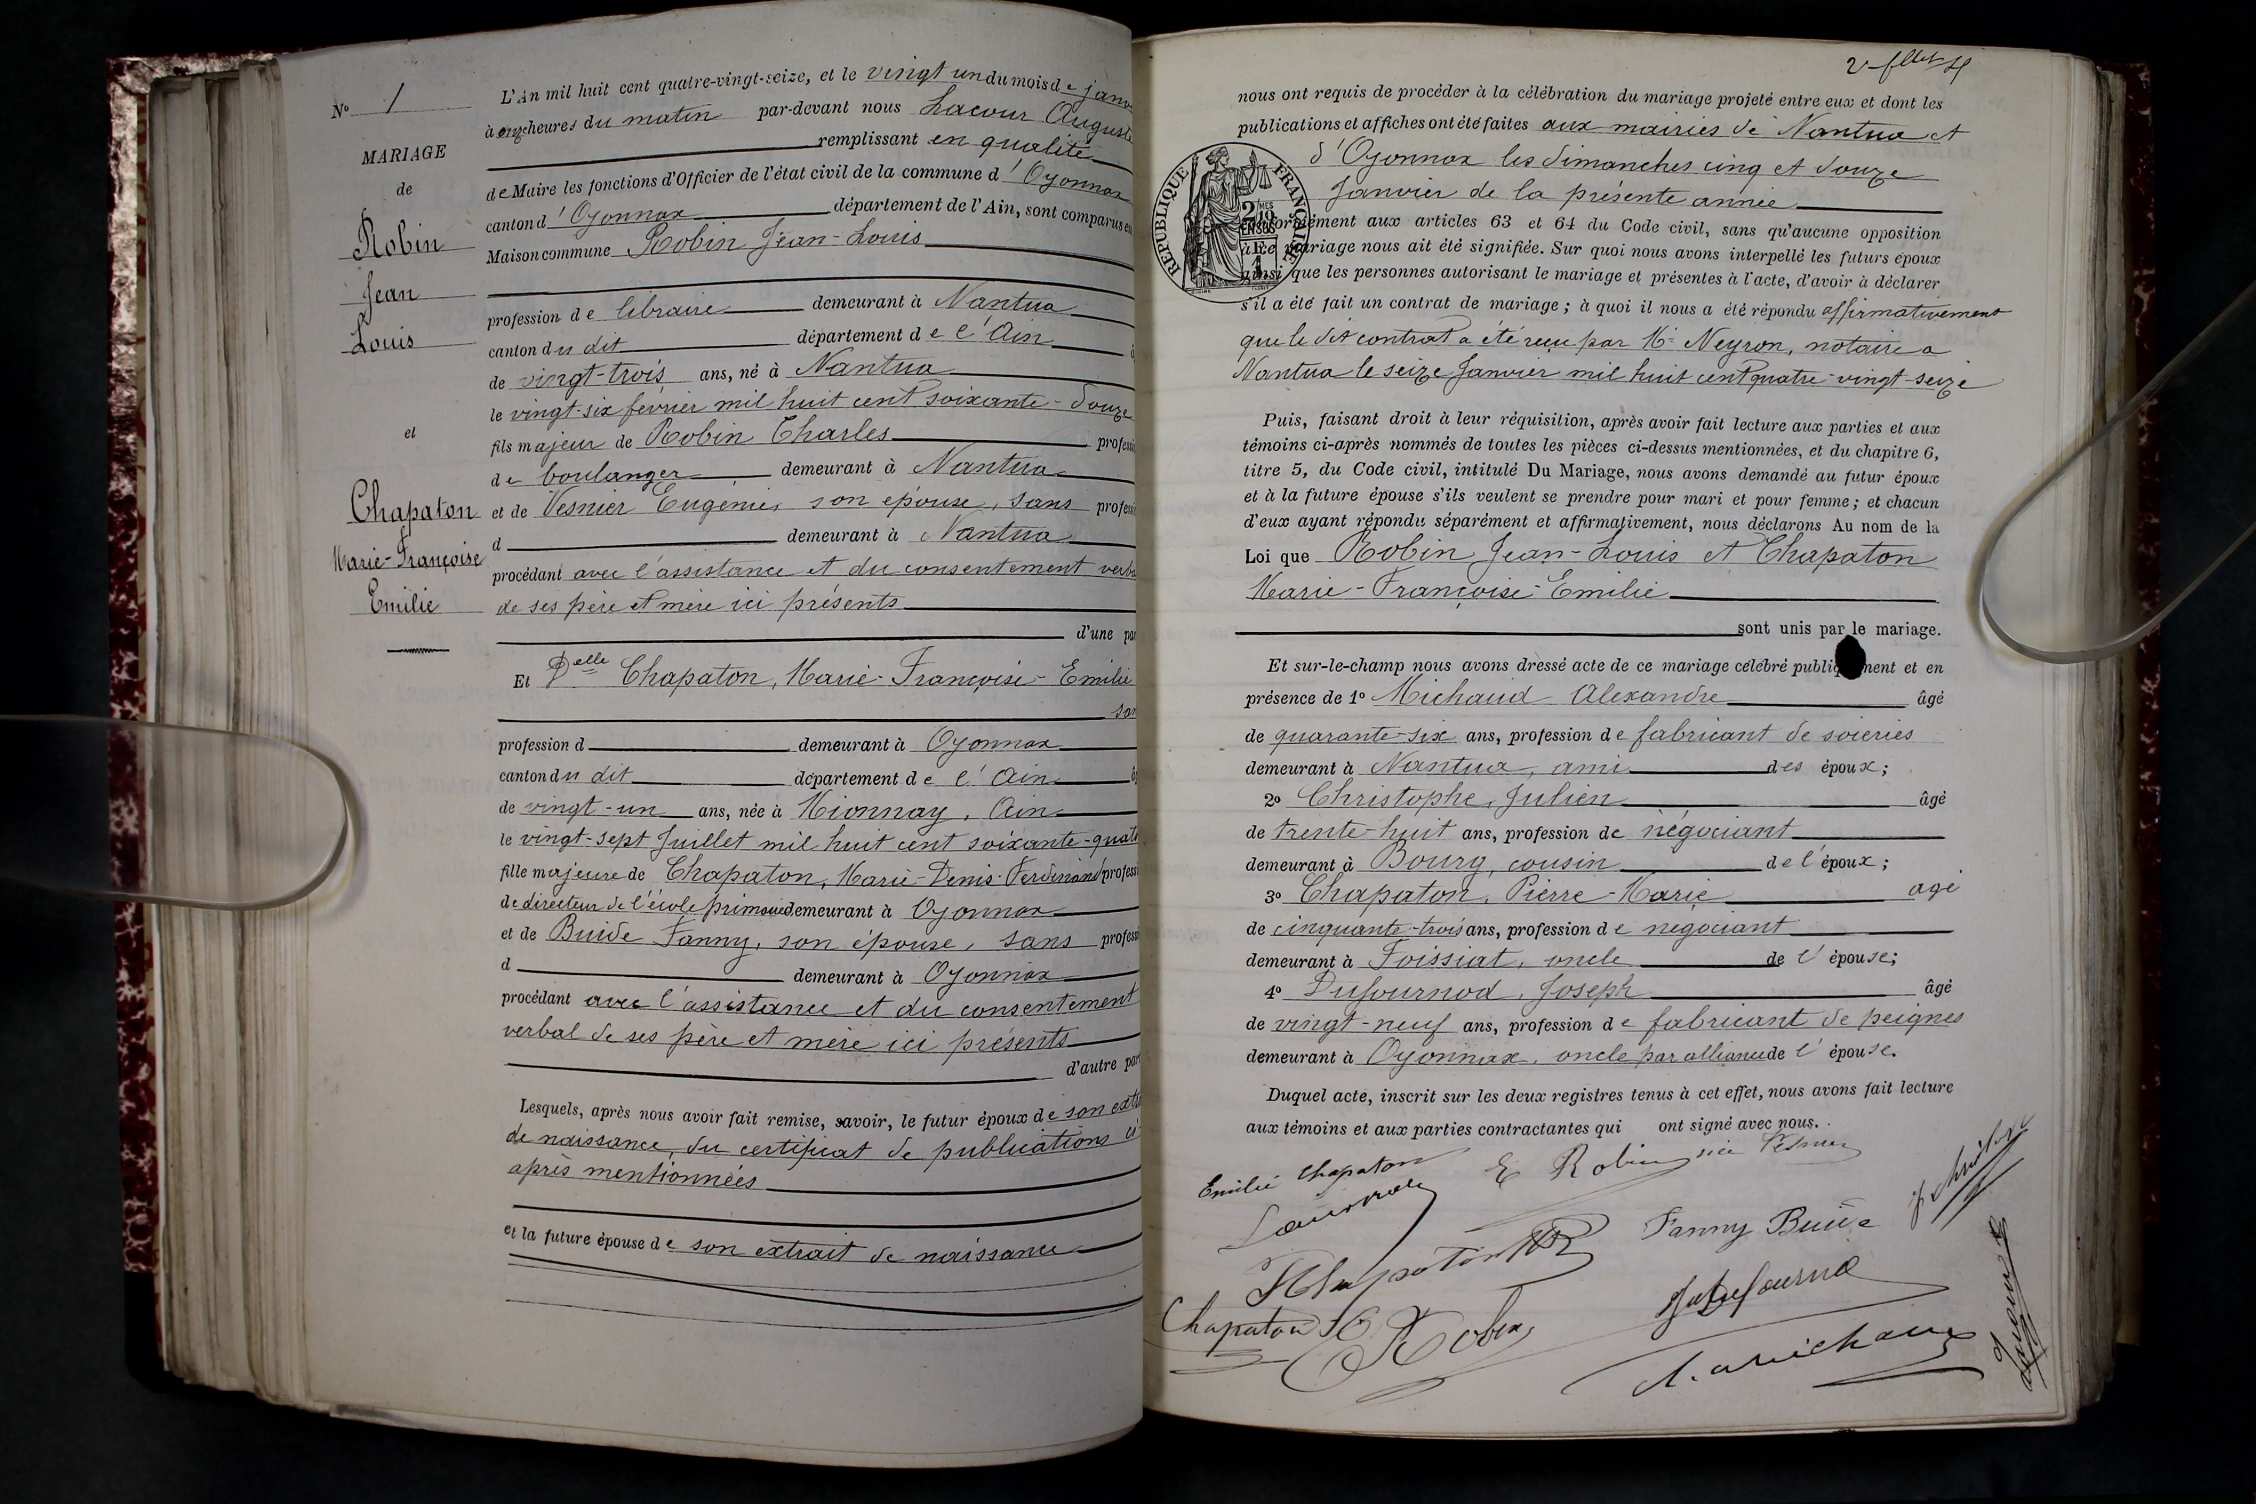 N° 1
MARIAGE
de
Robin
Jean
Louis
et
Chapaton
Marie-Françoise
Emilie
L'An mil huit cent quatre-vingt-seize, et le vingt un du mois de janv
à onze heures du matin par-devant nous Lacour Auguste
remplissant en qualité
de Maire les fonctions d'Officier de l'état civil de la commune d'Oyonnax
canton d'Oyonnax département de l'Ain, sont comparus en
Maison commune Robin Jean-Louis
profession de libraire demeurant à Nantua
canton du dit département de l'Ain
de vingt-trois ans, né à Nantua
le vingt-six février mil huit cent soixante-douze
fils majeur de Robin Charles professi
de boulanger demeurant à Nantua
et de Vesnier Eugénie, son épouse, sans professi
d demeurant à Nantua
procédant avec l'assistance et du consentement verba
de ses père et mère ici présents
d'une par
Et Delle Chapaton, Marie-Françoise-Emilie
san
profession d demeurant à Oyonnax
canton du dit département de l'Ain
de vingt-un ans, née à Mionnay, Ain
le vingt-sept Juillet mil huit cent soixante-quato
fille majeure de Chapaton, Marie-Denis-Ferdinand professi
de directeur de l'école primaire demeurant à Oyonnax
et de Buide Fanny, son épouse, sans professi
d demeurant à Oyonnax
procédant avec l'assistance et du consentement
verbal de ses père et mère ici présents
d'autre part
Lesquels, après nous avoir fait remise, savoir, le futur époux de son extr
de naissance, du certificat de publications ci
après mentionnées
et la future épouse de son extrait de naissance
nous ont requis de procéder à la célébration du mariage projeté entre eux et dont les
publications et affiches ont été faites aux mairies de Nantua et
d'Oyonnax les dimanches cinq et douze
Janvier de la présente année
RÉPUBLIQUE FRANÇAISE
2 MES 19 EN SUS
conformément aux articles 63 et 64 du Code civil, sans qu'aucune opposition
à ce mariage nous ait été signifiée. Sur quoi nous avons interpellé les futurs époux
ainsi que les personnes autorisant le mariage et présentes à l'acte, d'avoir à déclarer
s'il a été fait un contrat de mariage ; à quoi il nous a été répondu affirmativement
que le dit contrat a été reçu par Me Neyron, notaire a
Nantua le seize Janvier mil huit cent quatre-vingt-seize
Puis, faisant droit à leur réquisition, après avoir fait lecture aux parties et aux
témoins ci-après nommés de toutes les pièces ci-dessus mentionnées, et du chapitre 6,
titre 5, du Code civil, intitulé Du Mariage, nous avons demandé au futur époux
et à la future épouse s'ils veulent se prendre pour mari et pour femme ; et chacun
d'eux ayant répondu séparément et affirmativement, nous déclarons Au nom de la
Loi que Robin Jean-Louis et Chapaton
Marie-Françoise-Emilie
sont unis par le mariage.
Et sur-le-champ nous avons dressé acte de ce mariage célébré publiquement et en
présence de 1° Michaud Alexandre âgé
de quarante-six ans, profession de fabricant de soieries
demeurant à Nantua, ami des époux ;
2° Christophe, Julien âgé
de trente-huit ans, profession de négociant
demeurant à Bourg, cousin de l'époux ;
3° Chapaton, Pierre-Marie agé
de cinquante-trois ans, profession de negociant
demeurant à Foissiat, oncle de l'épouse;
4° Dufournod, Joseph âgé
de vingt-neuf ans, profession de fabricant de peignes
demeurant à Oyonnax, oncle par alliance de l'épouse.
Duquel acte, inscrit sur les deux registres tenus à cet effet, nous avons fait lecture
aux témoins et aux parties contractantes qui ont signé avec nous.
Emilie Chapaton
E Robin née Vesnier
Fanny Buide
Chapaton
Chapaton
Robin
A. Michaud